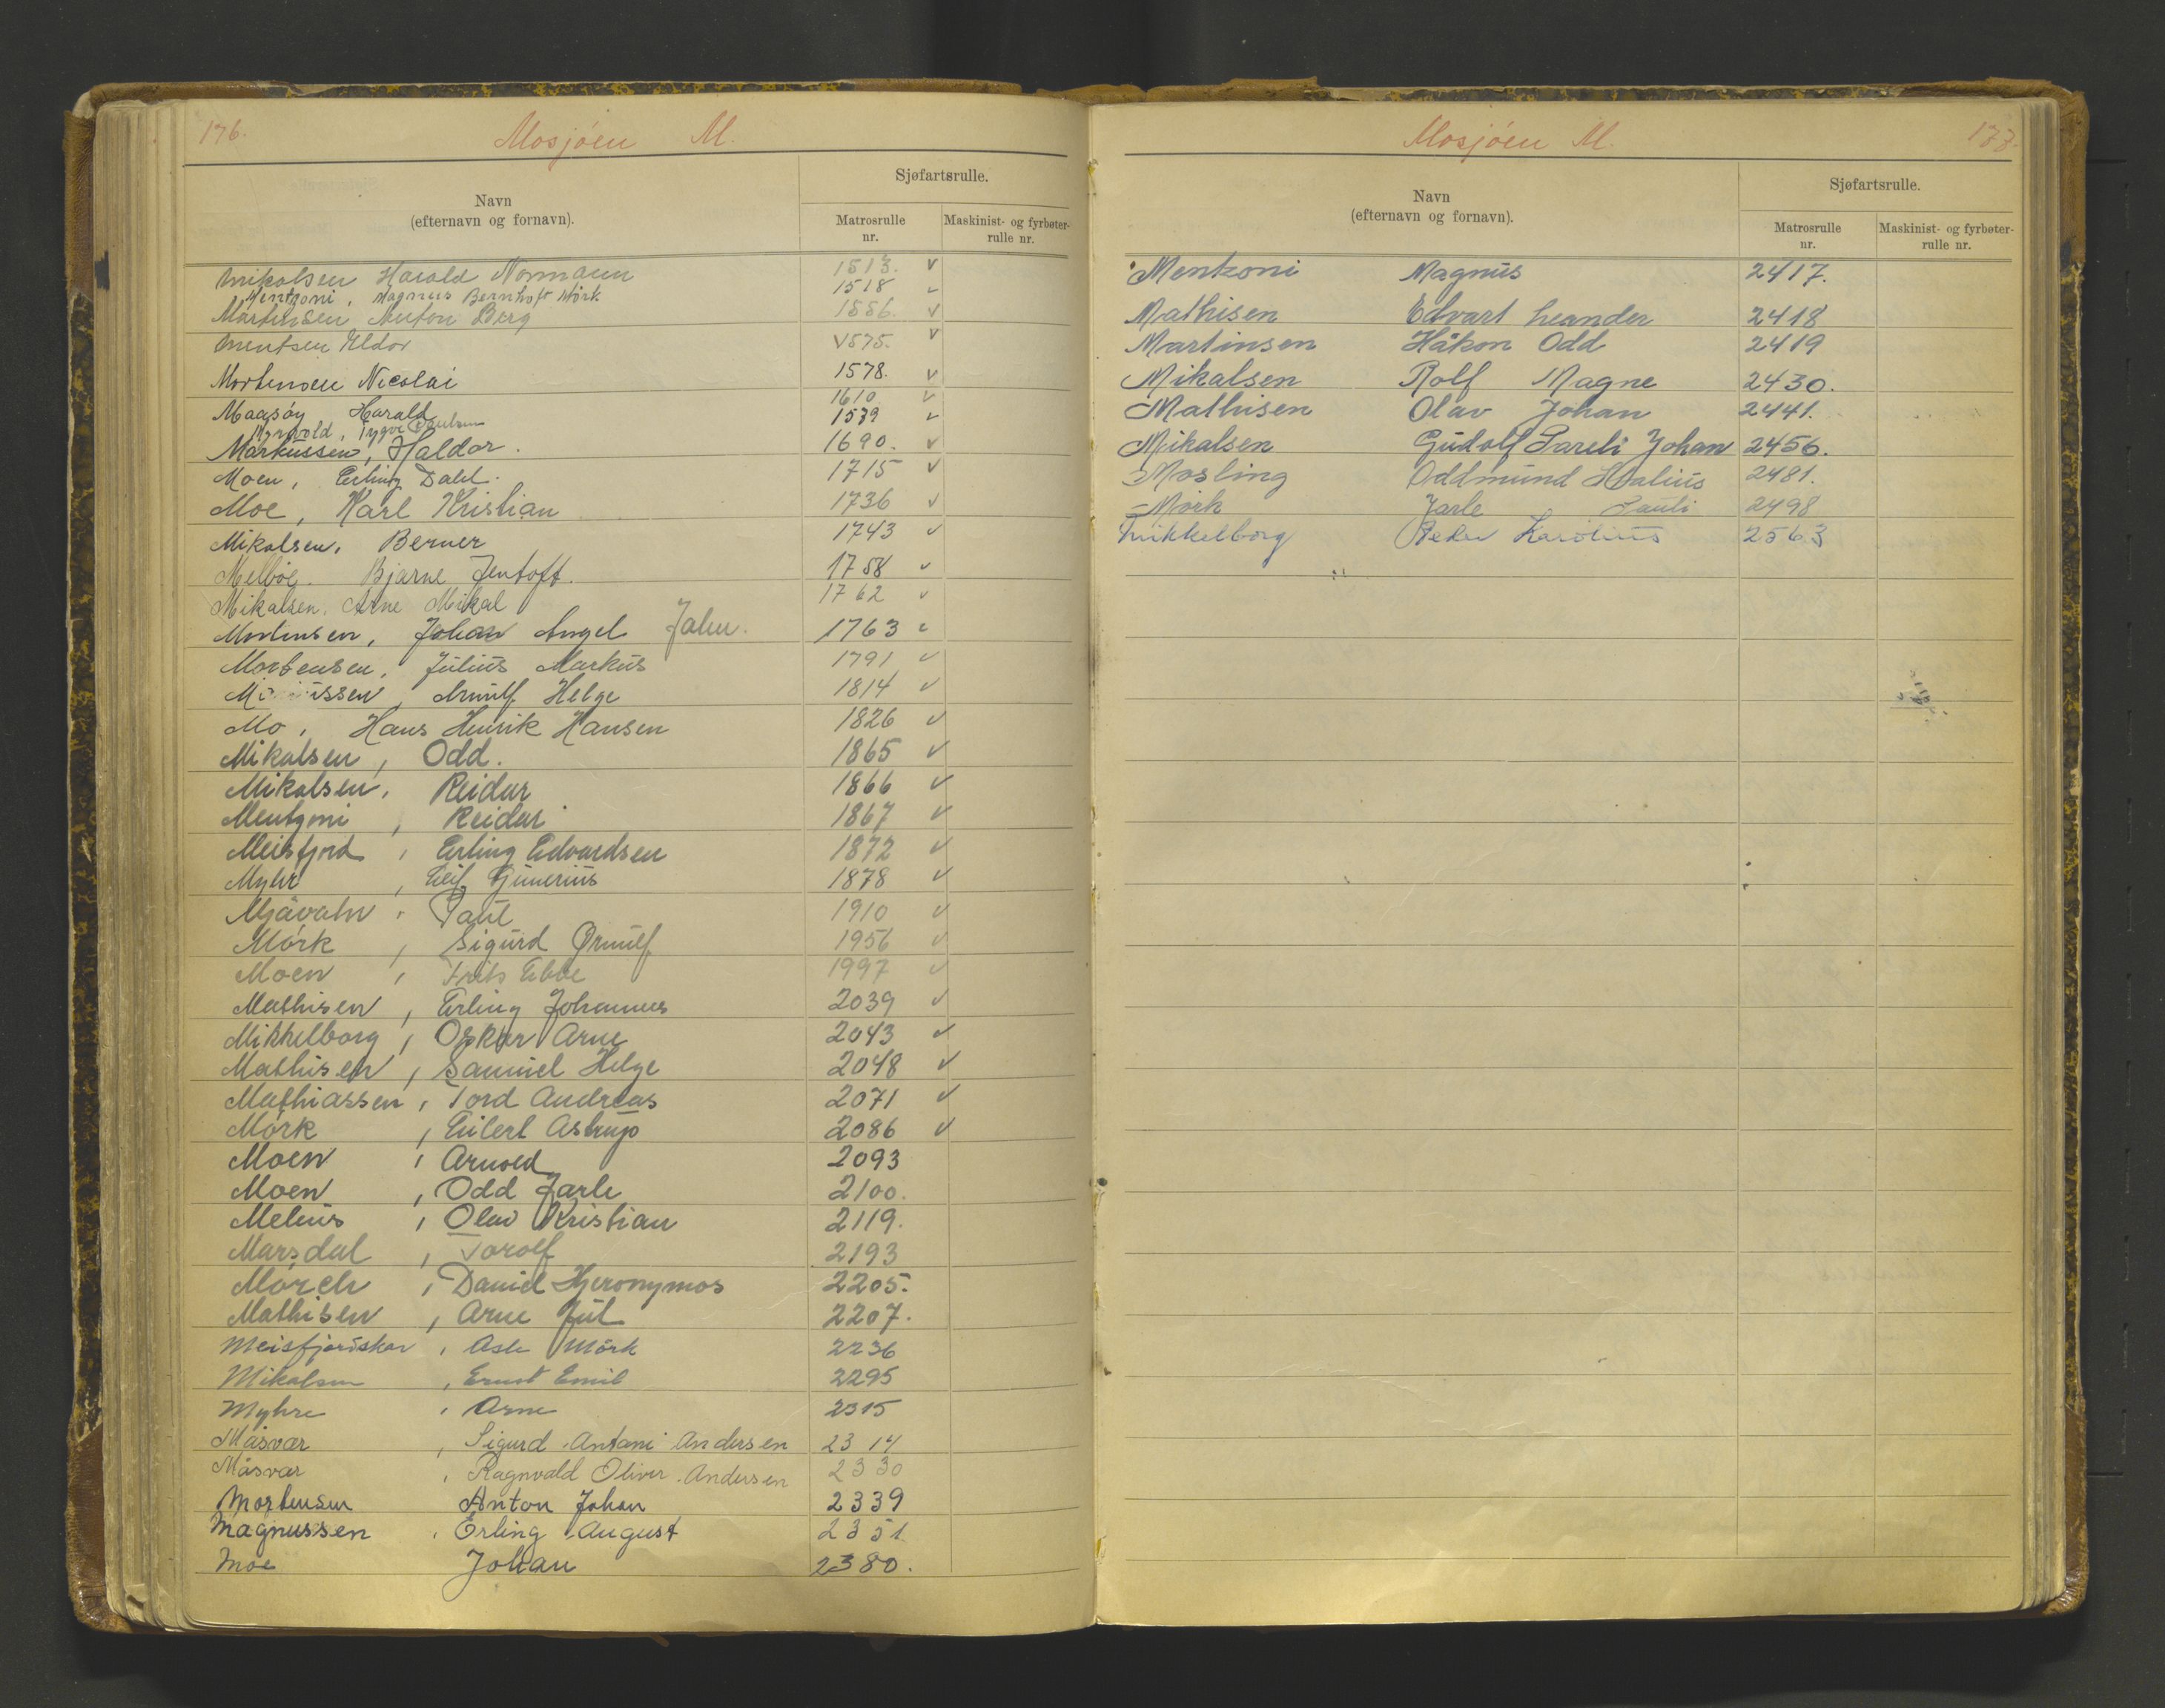 176.
Mosjöen M.
Navn
(efternavn og fornavn).
Sjøfartsrulle.
Matrosrulle
nr.
Maskinist- og fyrbøter-
rulle nr.
Mikalsen Harald Normann 1513. ✓
Mentzoni, Magnus Bernhoft Mörk 1518 ✓
Martinsen Anton Berg 1556. ✓
Mentsen Eldor 1575. ✓
Mortensen Nicolai 1578. ✓
Maasöy Harald 1610 ✓
Myrvold, Tygve Paulsen 1539 ✓
Markussen, Haldor. 1690. ✓
Moen, Erling Dahl. 1715 ✓
Moe, Karl Kristian 1736 ✓
Mikalsen, Berner 1743 ✓
Melböe. Bjarne Jentoft. 1758 ✓
Mikalsen, Arne Mikal 1762 ✓
Mortensen, Johan Angel John. 1763 ✓
Mortensen, Julius Markus 1791 ✓
Arnulf Helge 1814 ✓
Mo, Hans Henrik Hansen 1826 ✓
Mikalsen, Odd. 1865 ✓
Mikalsen, Reidar 1866 ✓
Mentzoni, Reidar 1867 ✓
Meisfjord, Erling Edvardsen 1872 ✓
Myhr, Leif Gunerius 1878 ✓
Mjåvatn, Paul 1910 ✓
Mörk, Sigurd Ørnulf 1956 ✓
Moen, Frits Ebbe 1997 ✓
Mathisen, Erling Johannes 2039 ✓
Mikkelborg, Oskar Arne 2043 ✓
Mathisen, Samuel Helge 2048 ✓
Mathiassen, Tord Andreas 2071 ✓
Mörk, Eilert Astrup 2086 ✓
Moen, Arnold 2093
Moen, Odd Jarle 2100.
Melnis, Olav Kristian 2119.
Marsdal, Torolf 2193
Mörch, Daniel Hjeronymos 2205.
Mathisen, Arne Jul 2207.
Meisfjordskar, Asle Mörk 2236
Mikalsen, Ernst Emil 2295
Myhre, Arne 2315
Måsvær, Sigurd Antoni Andersen 2314
Måsvær, Ragnvald Oliver Andersen 2330
Mortensen Anton Johan 2339
Magnussen, Erling August 2351.
Moe Johan 2380.
Mosjöen M.
177.
Navn
(efternavn og fornavn).
Sjøfartsrulle.
Matrosrulle
nr.
Maskinist- og fyrbøter-
rulle nr.
Mentzoni Magnus 2417.
Mathisen Edvart Leander 2418
Martinsen Håkon Odd 2419
Mikalsen Rolf Magne 2430.
Mathisen Olav Johan 2441.
Mikalsen Gudolf Sareli Johan 2456.
Mosling Oddmund Hdalius 2481.
Mörk Jarle Pauli 2498
Mikkelborg Peder Karolius 2563